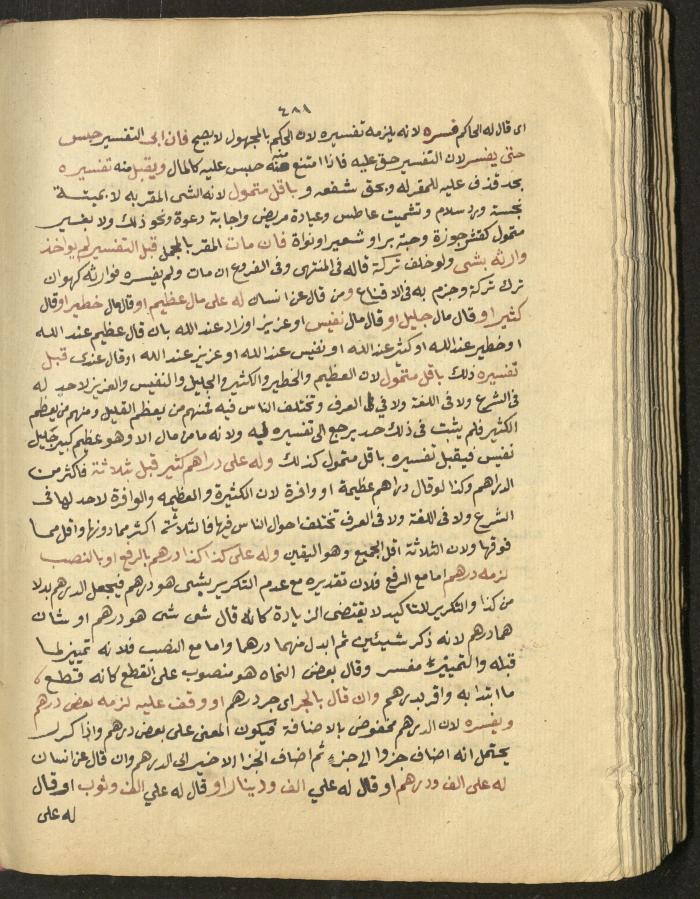 ٤٨١
اى قال له الحاكم فسره لانه يلزمه تفسيره لان الحكم بالمجهول لا يصح فان ابى التفسير حبس
حتى يفسر لان التفسير حق عليه فاذا امتنع منه حبس عليه كالمال ويقبل منه تفسيره
بحد قذف عليه للمقر له وبحق شفعه وباقل متمول لانه الشى المقر به لا بميتة
نجسة ورد سلام وتشميت عاطس وعيادة مريض واجابة دعوة ونحو ذلك ولا بغير
متمول كقشر جوزة وحبة بر او شعير او نواة فان مات المقر بالمجمل قبل التفسير لم يواخذ
وارثه بشى ولو خلف تركة قاله فى المنتهى وفى الفروع ان مات ولم يفسره فوارثه كهو ان
ترك تركة وجزم به فى الاقناع ومن قال عن انسان له على مال عظيم او قال مال خطير او قال
كثير او قال مال جليل او قال مال نفيس او عزيز او زاد عند الله بان قال عظيم عند الله
او خطير عند الله او كثير عند الله او نفيس عند الله او عزيز عند الله او قال عندى قبل
تفسيره ذلك باقل متمول لان العظيم والخطير والكثير والجليل والنفيس والعزيز لا حد له
فى الشرع ولا فى اللغة ولا فى العرف وتختلف الناس فيه فمنهم من يعظم القليل ومنهم من يعظم
الكثير فلم يثبت فى ذلك حد يرجع الى تفسيره به ولانه ما من مال الا وهو عظيم كبير جليل
نفيس فيقبل تفسيره باقل متمول كذلك وله على دراهم كثير قبل ثلاثة فاكثر من
الدراهم وكذا لو قال دراهم عظيمة او وافرة لان الكثيرة والعظيمه والوافرة لا حد لها فى
الشرع ولا فى اللغة ولا فى العرف تختلف احوال الناس فيها فالثلاثة اكثر مما دونها واقل مما
فوقها ولان الثلاثة اقل الجمع وهو اليقين وله على كذا كذا درهم بالرفع او بالنصب
لزمه درهم اما مع الرفع فلان تقديره مع عدم التكرير شى هو درهم فيجعل الدرهم بدلا
من كذا والتكرير للتاكيد لا يقتضى الزيادة كانه قال شى شى هو درهم او شان
هما درهم لانه ذكر شيئين ثم ابدل منهما درهما واما مع النصب فلانه تمييز لما
قبله والتمييز مفسر وقال بعض النحاه هو منصوب على القطع كانه قطع
ما ابتدا به واقر بدرهم وان قال بالجر اى جر درهم او وقف عليه لزمه بعض درهم
ويفسره لان الدرهم مخفوض بالاضافة فيكون المعنى على بعض درهم واذا كرر
يحتمل انه اضاف جزوا الى جزء ثم اضاف الجزا الاخير الى الدرهم وان قال عن انسان
له على الف ودرهم او قال له علي الف ودينار او قال له علي الف وثوب او قال
له على